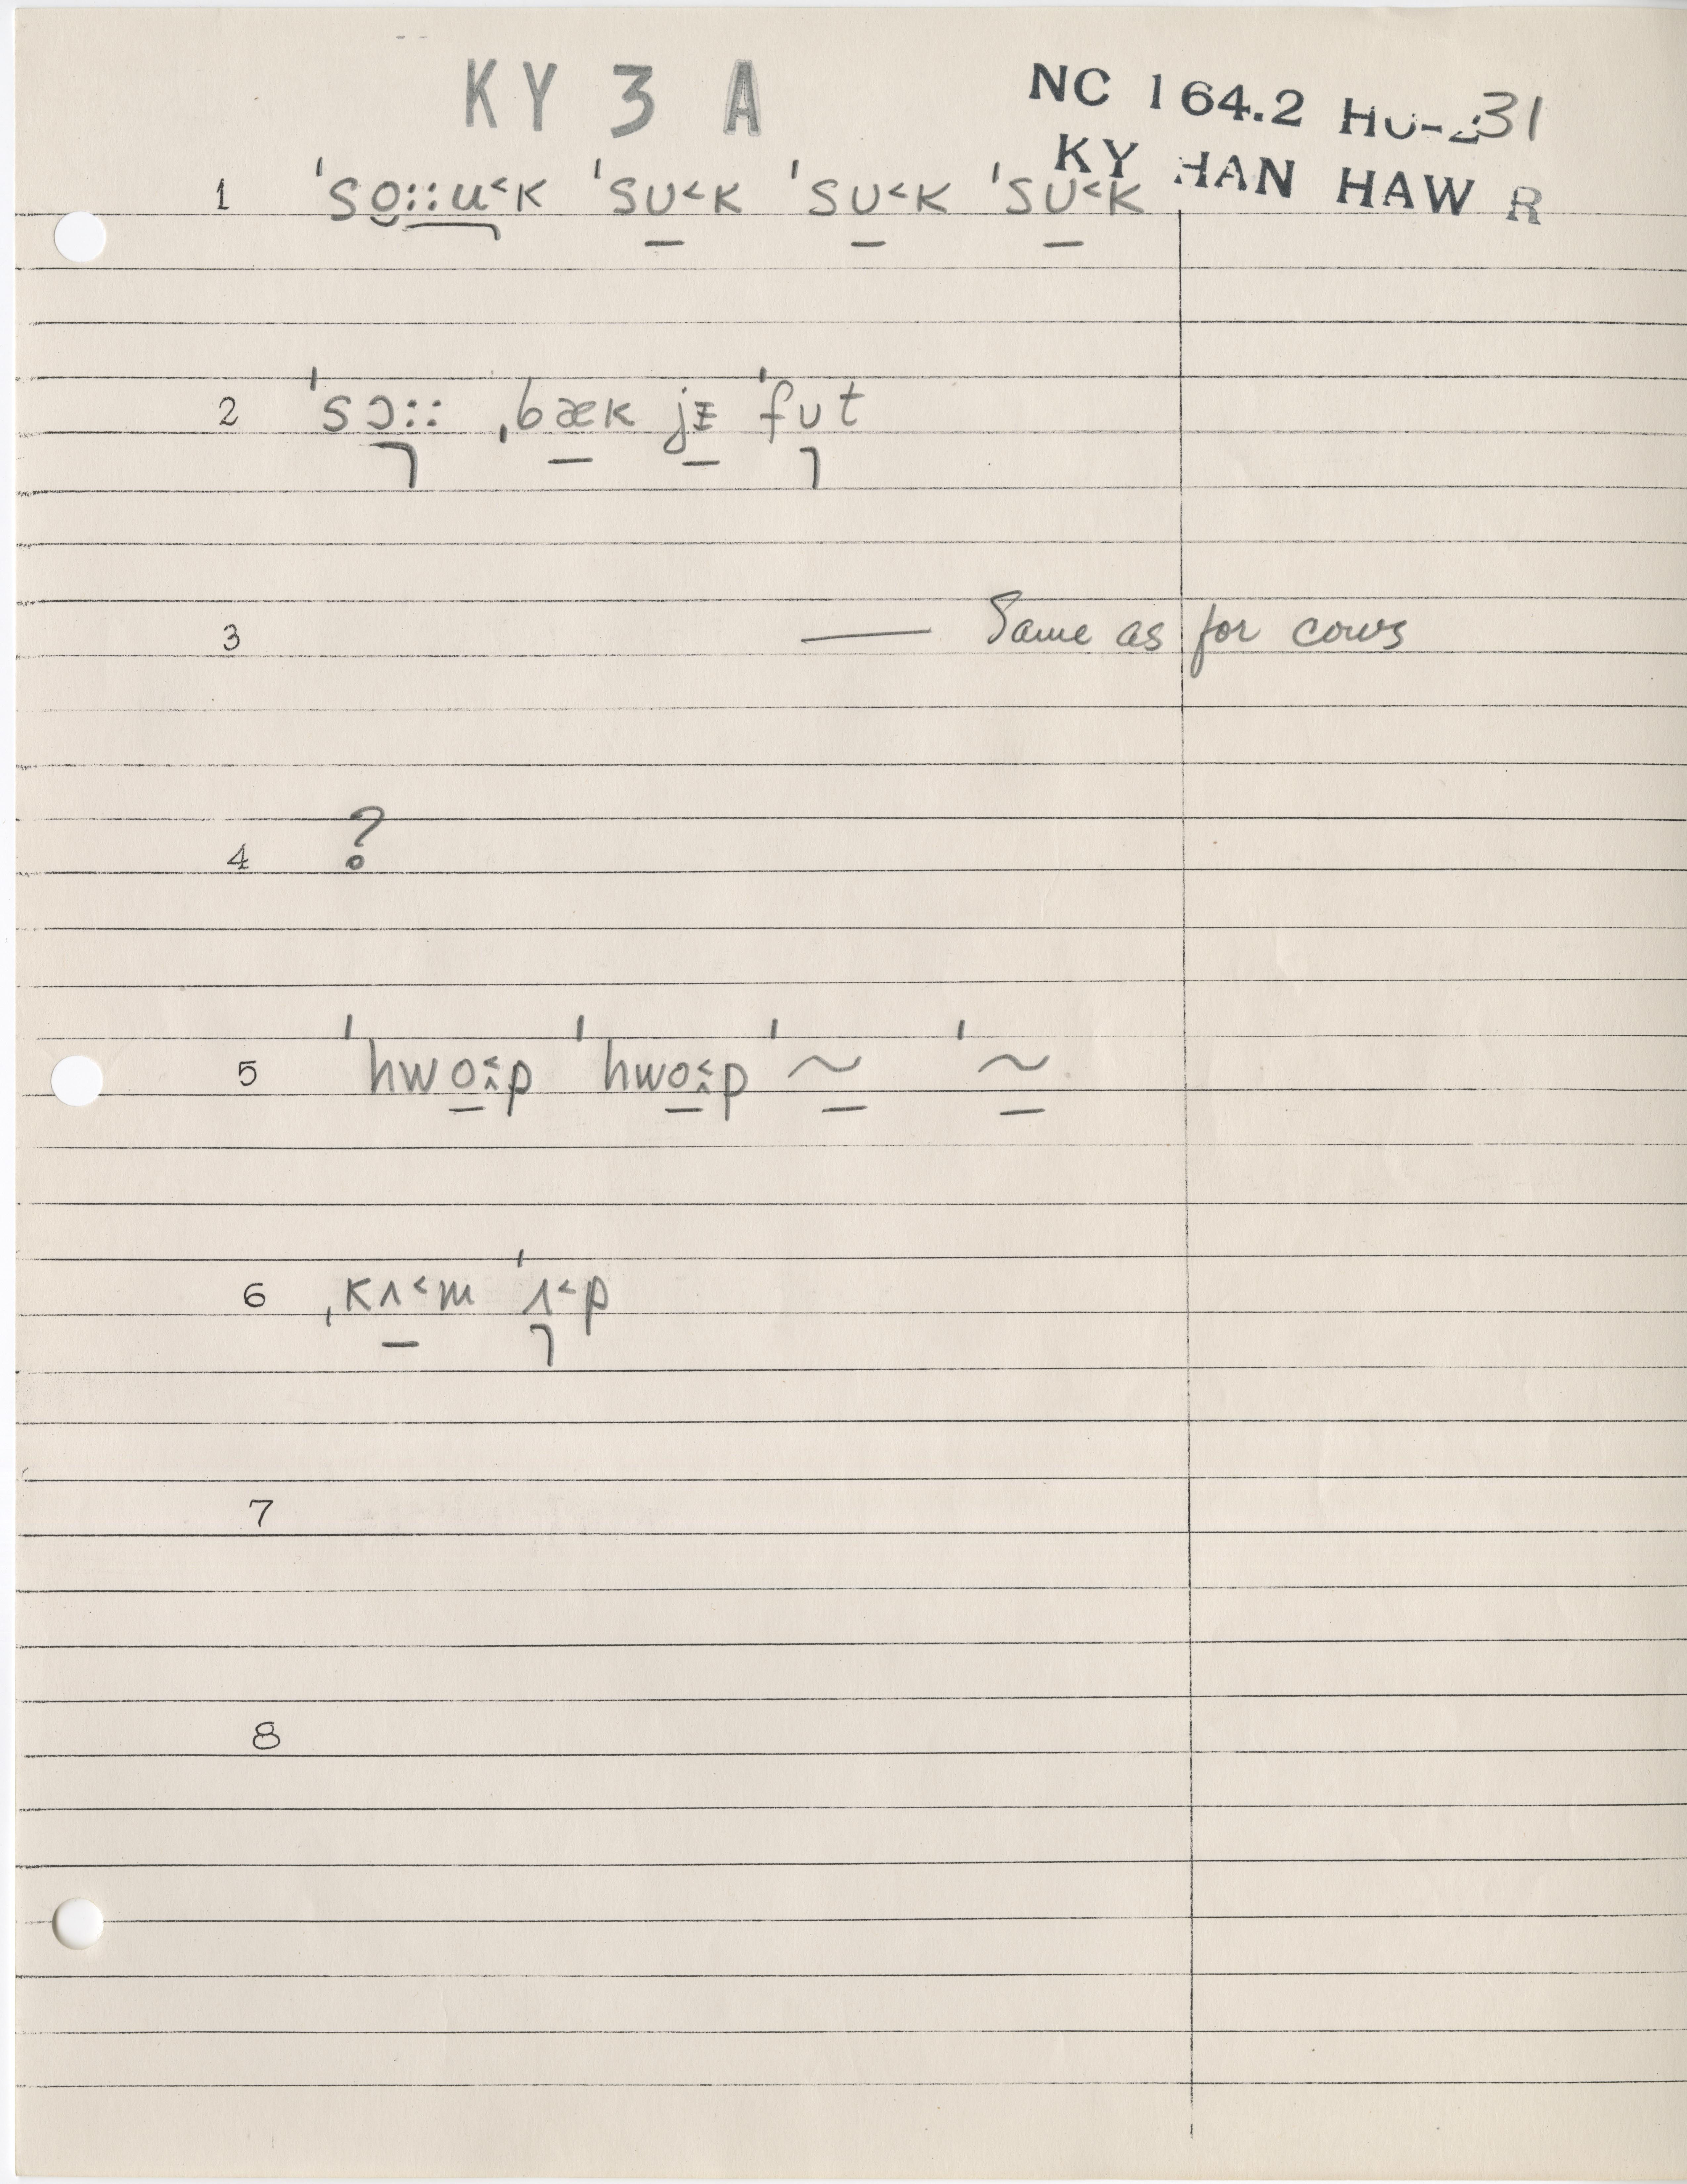 KY 3 A
NC 164.2 Ho-231
KY HAN HAW R
1 ˈso̮::u˂k ˈsʊ˂k ˈsʊ˂k ˈsʊ˂k
2 ˈsɔ:: ˌbæk jɪ̵ ˈfʊt
3 — Same as for cows
4 ?
5 ˈhwo˂̭p ˈhwo˂̭p ˈ~ ˈ~
6 ˌkʌ˂m ˈʌ˂p
7
8